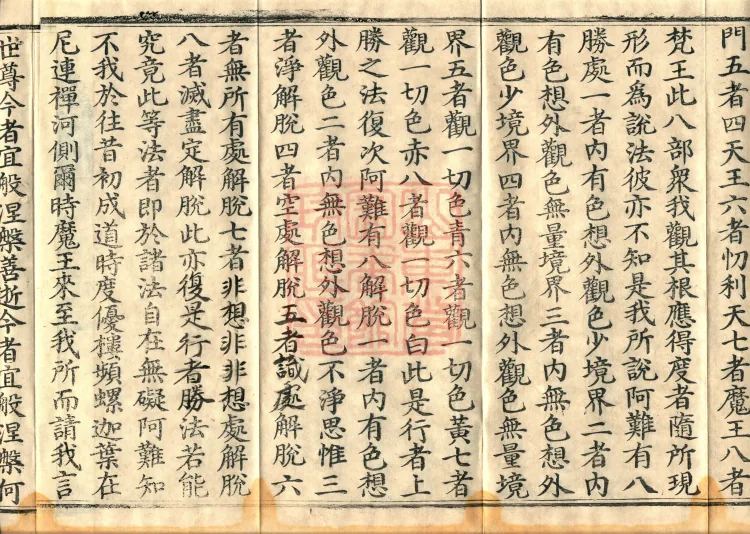 門五者四天王六者忉利天七者魔王八者
梵王此八部衆我觀其根應得度者隨所現
形而爲說法彼亦不知是我所說阿難有八
勝處一者內有色想外觀色少境界二者內
有色想外觀色無量境界三者內無色想外
觀色少境界四者內無色想外觀色無量境
界五者觀一切色青六者觀一切色黃七者
觀一切色赤八者觀一切色白此是行者上
勝之法復次阿難有八解脫一者內有色想
外觀色二者內無色想外觀色不淨思惟三
者淨解脫四者空處解脫五者識處解脫六
者無所有處解脫七者非想非非想處解脫
八者滅盡定解脫此亦復是行者勝法若能
究竟此等法者即於諸法自在無礙阿難知
不我於往昔初成道時度優樓頻螺迦葉在
尼連禪河側爾時魔王來至我所而請我言
世尊今者宜般涅槃善逝今者宜般涅槃何